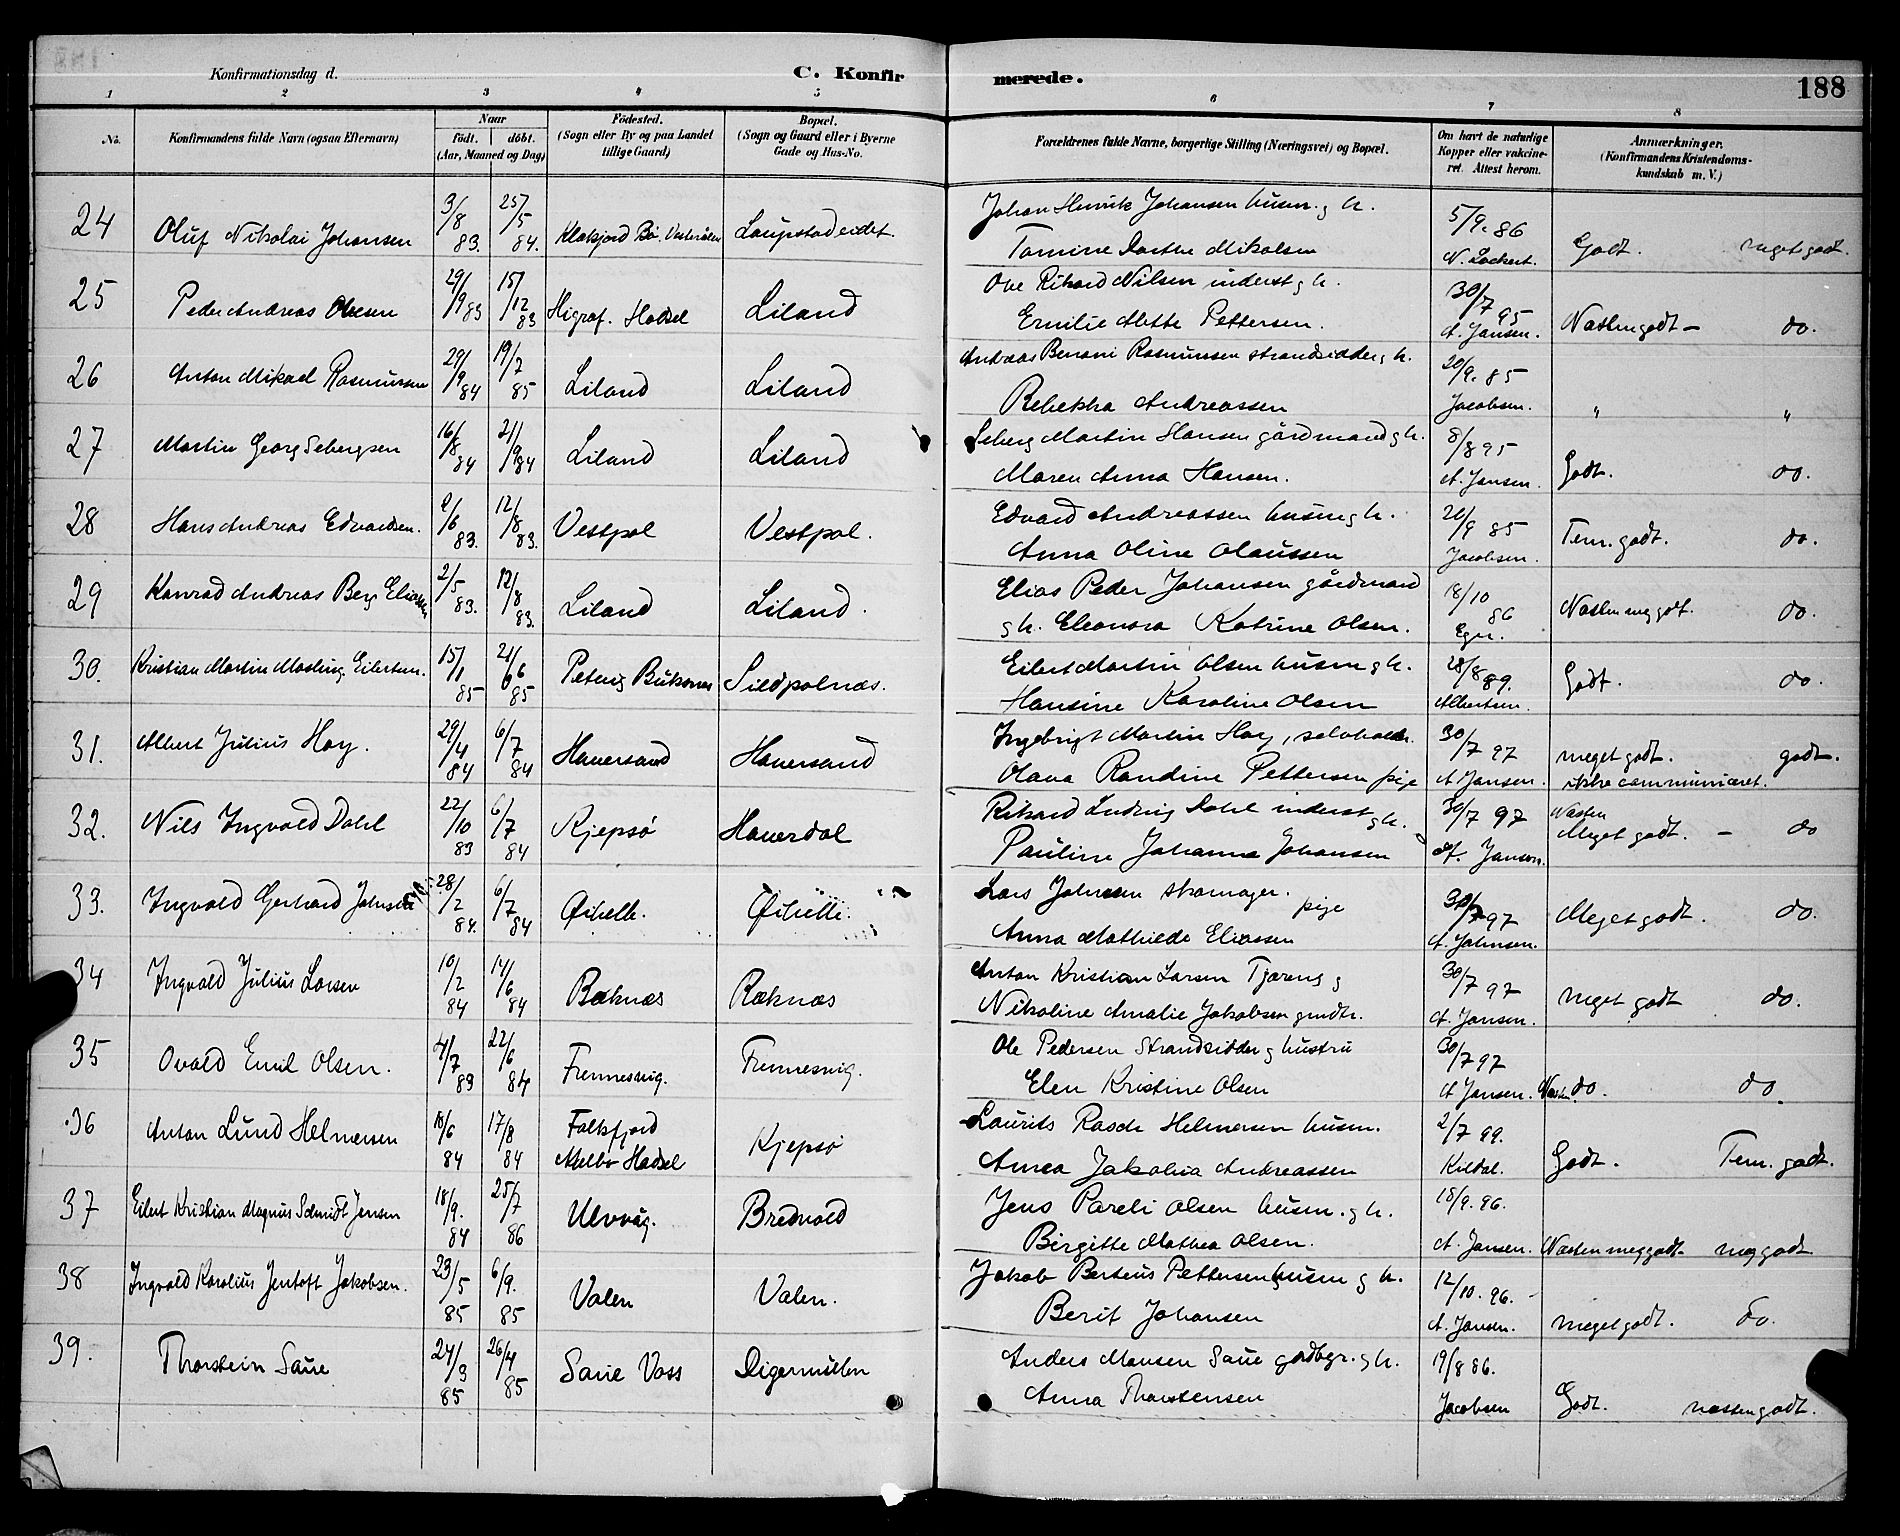 Konfirmationsdag d. C. Konfir merede. 188
1 2 3 4 5 6 7 8
No. Konfirmandens fulde Navn (ogsaa Efternavn) Naar født. døbt. (Aar, Maaned og Dag) Fødested. (Sogn eller By og paa Landet tillige Gaard) Bopæl. (Sogn og Gaard eller i Byerne Gade og Hus-No. Forældrenes fulde Navne, borgerlige Stilling (Næringsvei) og Bopæl. Om havt de naturlige Kopper eller vakcineret. Attest herom. Anmærkninger. (Konfirmandens Kristendomskundskab m. V.)
24 Oluf Nikolai Johansen 3/8 83. 25/5 84. Klaksjord Bø. Vesterålen Laupstadeidet. Johan Henrik Johansen husm. g h. 5/9. 86
Tomine Dorthe Mikalsen N. Lockert. Godt. meget godt.
25 Peder Andreas Olsen 29/9 83 15/12 83 Higraf. Hadsel Liland Ove Rikard Nilsen inderst g h. 30/7 95
Emilie Mette Pettersen. A. Jansen. Næsten godt – do.
26 Anton Mikael Rasmussen 29/9 84 19/7 85 Liland Liland Andreas Benoni Rasmussen strandsidder g h. 20/9. 85
Rebekka Andreassen Jacobsen. " "
27 Martin Georg Sebergsen 16/8 84 21/9 84 Liland Liland Seberg Martin Hansen gårdmand g h. 8/8 95
Maren Anna Hansen. A. Jansen. Godt. do.
28 Hans Andreas Edvardsen. 2/6 83. 12/8 83. Vestpol Vestpol. Edvard Andreassen husm g h. 20/9 85
Anna Oline Olaussen Jacobsen. Tem. godt. do.
29 Konrad Andreas Berg Eliassen 2/5 83. 12/8 83. Liland Liland. Elias Peder Johansen gårdmand 18/10 86
g h. Eleonora Katrine Olsen. Næsten meg godt. do.
30. Kristian Martin Eilertsen. 15/1 85 21/6 85 Buksnes Sildpolnæs. Eilert Martin Olsen husm g h. 28/8 89.
Hansine Karoline Olsen Albertsen. Godt. do.
31. Albert Julius Hoy. 29/4 84 6/7 84 Hanersand Hanersand Ingebrigt Martin Hoy, 30/7 97
Olava Randine Pettersen pige A Jansen. meget godt. godt.
ikke communiceret.
32. Nils Ingvald Dahl 22/10 83 6/7 84 Kjepsø Hanerdal Rikard Ludvig Dahl inderst g h. 30/7 97 Næsten
Pauline Johanna Johansen A. Jansen. Meget godt. – do
33. Ingvald Gerhard Johnsen 28/2 84. 6/7 84 Øihelle. Øihelle. Lars Johnsen skomager. pige 30/7 97
Anna Mathilde Eliassen A. Johnsen. Meget godt. do.
34 Ingvald Julius Larsen 10/2 84 14/6 84 Ræknæs Ræknæs Anton Kristian Larsen Tjæreng g 30/7 97
Nikoline Amalie Jakobsen A. Jansen. meget godt do.
35 Ovald Emil Olsen. 4/7 83 22/6 84 Frennesvig. Frennesvig. Ole Pedersen Strandsidder g hustru 30/7 97
Elen Kristine Olsen A Jansen. Næsten do. do.
36 Anton Lund Helmersen 18/6 84 17/8 84 Falkfjord Melbo Hadsel Kjepsø Laurits Rasch Helmersen husm. 2/7 99.
Anna Jakobia Andreassen Kildal. Godt. Tem. godt.
37 Eilert Kristian Magnus Schmidt Jensen 18/9. 84 25/7 86 Ulvvåg. Bredvold Jens Pareli Olsen husm. g h. 18/9. 96.
Birgitte Mathea Olsen. A. Jansen. Næsten meg godt meg godt
38 Ingvald Karolius Jentoft Jakobsen. 23/5 85 6/9. 85 Valen Valen. Jakob Berteus Pettersen husm g h. 12/10. 96.
Berit Johansen A. Jansen. meget godt. do.
39. Thorstein Saue 24/3 85 26/4 85 Saue Voss Digermullen Anders Monsen Saue gårdbgr. g h. 19/8 86.
Anna Thorstensen Jacobsen Godt. næsten godt.